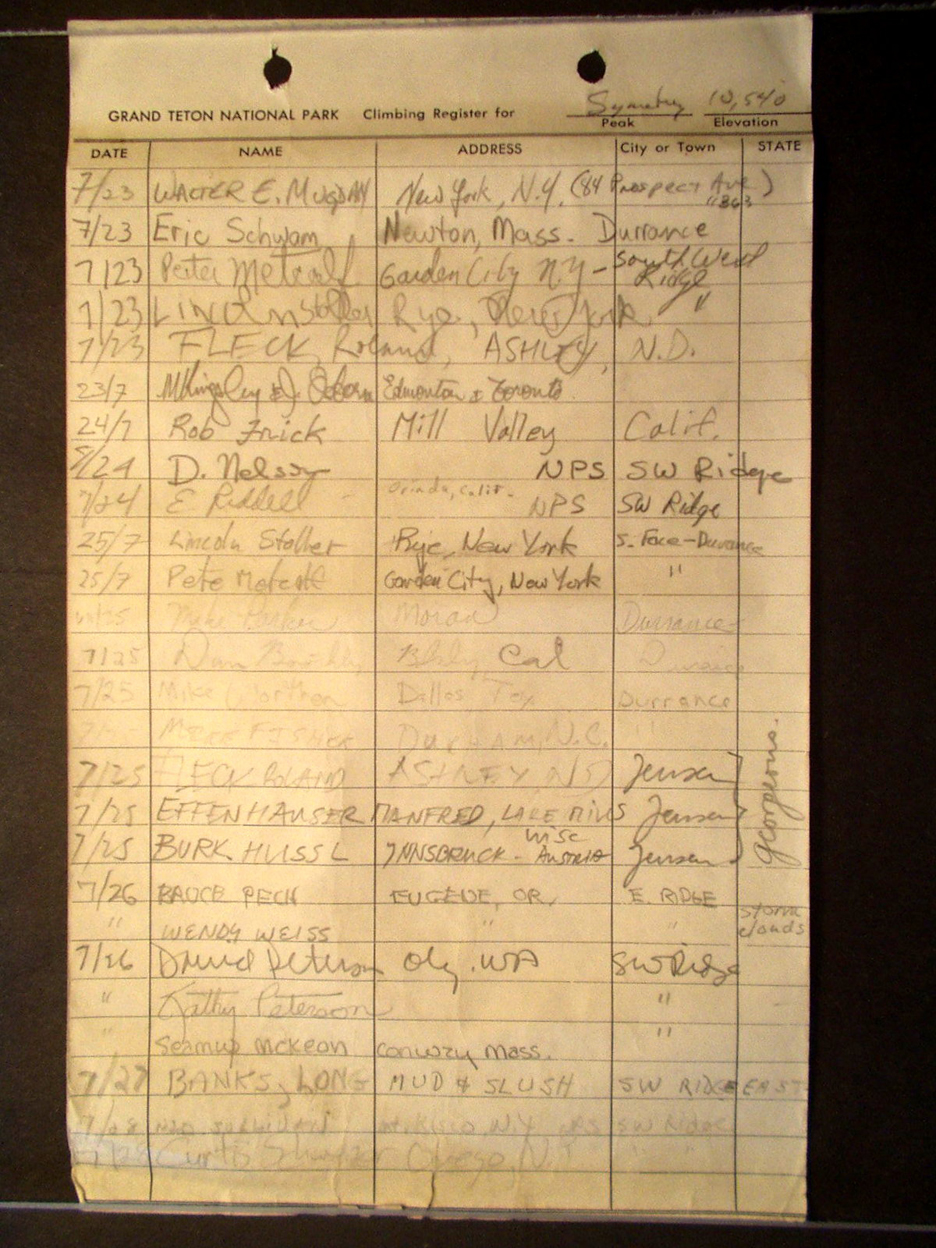 Symetry 10,540
GRAND TETON NATIONAL PARK Climbing Register for Peak Elevation
DATE NAME ADDRESS City or Town STATE
7/23 WALTER E. MUGDAN New York, N.Y. (84 Prospect Ave)
7/23 Eric Schwam Newton, Mass. Durrance
7/23 Peter Metcalf Garden City NY - South West
Ridge
7/23 LINCOLN Stoller Rye, New York "
7/23 FLECK, Roland, ASHLEY, N.D.
23/7 Edmonton & Toronto
24/7 Rob Frick Mill Valley Calif.
D. NPS SW Ridge
7/24 E Riddell Orinda, Calif. NPS SW Ridge
25/7 Lincoln Stoller Rye, New York S. Face-Durrance
25/7 Pete Metcalf Garden City, New York "
Mike Moran Durrance
7/25 Cal
7/25 Mike Dallas Tex Durrance
MIKE FISHER DURHAM, N.C. "
7/25 FLECK ROLAND ASHLEY, ND Jensen
7/25 EFFENHAUSER MANFRED, LAKE MILLS Jensen
Wisc
7/25 BURK HUSSL INNSBRUCK - AUSTRIA Jensen
georgeous.
7/26 BRUCE PECH EUGENE, OR, E. RIDGE
storm
clouds
" WENDY WEISS " "
7/26 David Peterson Oly. WA SW Ridge
" Kathy Peterson "
" Seamus McKeon Conway Mass. "
7/27 BANKS, LONG MUD & SLUSH SW RIDGE EAST
7/28 Sullivan Mt. Kisco, N.Y. SW Ridge
7/28 Curtis " "